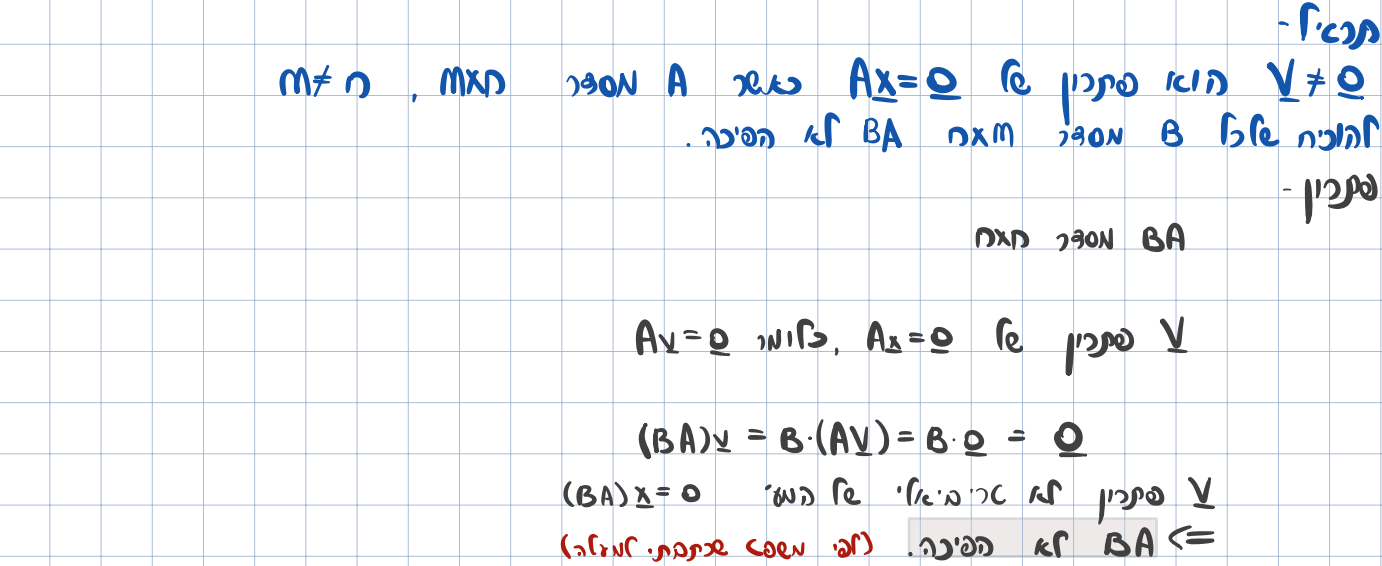 תרגיל -
v ≠ 0 הוא פתרון של Ax=0 כאשר A מסדר mxn , m≠n
להוכיח שלכל B מסדר nxm BA לא הפיכה.
פתרון -
BA מסדר nxn
v פתרון של Ax=0, כלומר Av=0
(BA)v = B·(Av) = B·0 = 0
v פתרון לא טריביאלי של המע' (BA)x=0
<= BA לא הפיכה. (לפי משפט שכתבתי למעלה)